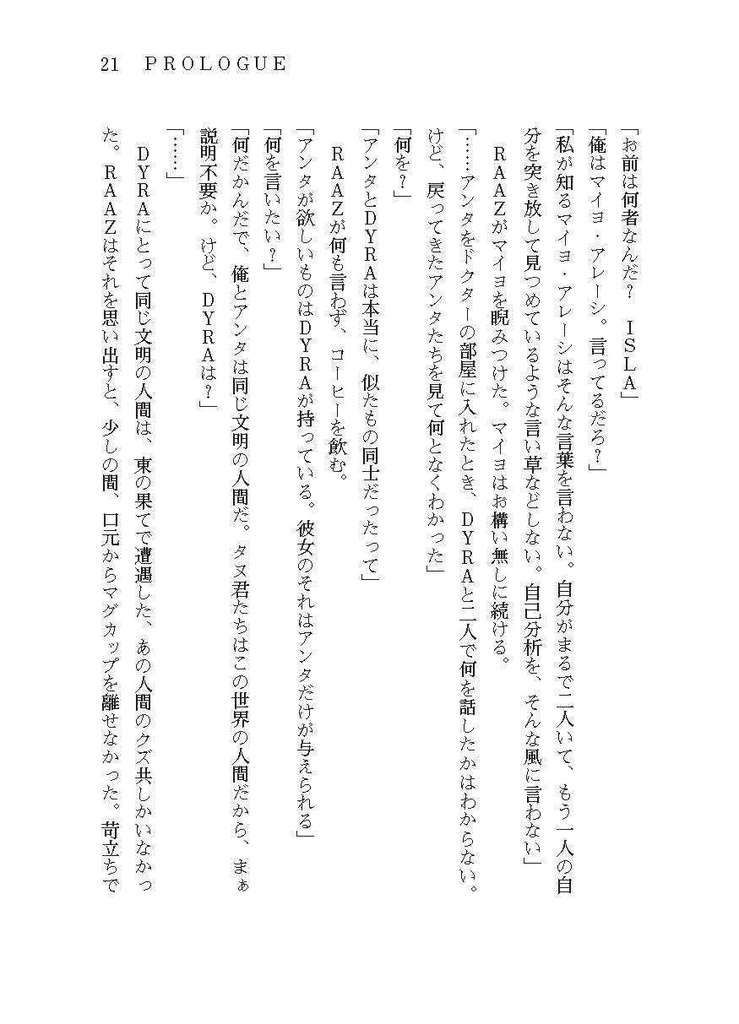 21 PROLOGUE
「お前は何者なんだ？ ISLA」
「俺はマイヨ・アレーシ。言ってるだろ？」
「私が知るマイヨ・アレーシはそんな言葉を言わない。自分がまるで二人いて、もう一人の自
分を突き放して見つめているような言い草などしない。自己分析を、そんな風に言わない」
　RAAZがマイヨを睨みつけた。マイヨはお構い無しに続ける。
「……アンタをドクターの部屋に入れたとき、DYRAと二人で何を話したかはわからない。
けど、戻ってきたアンタたちを見て何となくわかった」
「何を？」
「アンタとDYRAは本当に、似たもの同士だったって」
　RAAZが何も言わず、コーヒーを飲む。
「アンタが欲しいものはDYRAが持っている。彼女のそれはアンタだけが与えられる」
「何を言いたい？」
「何だかんだで、俺とアンタは同じ文明の人間だ。タヌ君たちはこの世界の人間だから、まぁ
説明不要か。けど、DYRAは？」
「……」
　DYRAにとって同じ文明の人間は、東の果てで遭遇した、あの人間のクズ共しかいなかっ
た。RAAZはそれを思い出すと、少しの間、口元からマグカップを離せなかった。苛立ちで